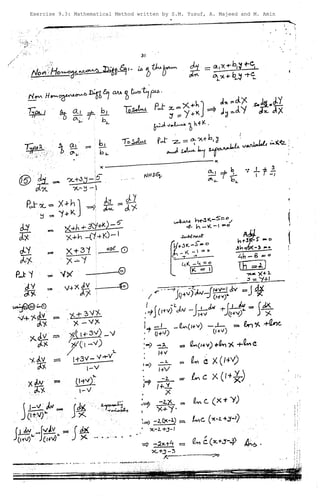 Exercise 9.3: Mathematical Method written by S.M. Yusuf, A. Majeed and M. Amin
Non-Homogeneous Diff Eq:- is of the form dy/dx = a₁x+b₁y+c₁ / a₂x+b₂y+c₂
Non Homogeneous Diff Eq are of two types.
Type1 If a₁/a₂ ≠ b₁/b₂ To Solve Put x = X+h, y = Y+k ⇒ dx = dX, dy = dY so dy/dx = dY/dX
find values of h & k.
Type2 If a₁/a₂ = b₁/b₂ To Solve Put z = a₁x+b₁y
and solve by separable variables
⑮ dy/dx = x+3y-5 / x-y-1 NHDE a₁/a₂ ≠ b₁/b₂ ∵ 1/1 ≠ 3/-1
Put x = X+h, y = Y+k } ⇒ dy/dx = dY/dX
dY/dX = X+h+3(Y+k)-5 / X+h-(Y+k)-1
where h+3k-5=0
h-k-1=0
Subtract
h+3k-5=0
h-k-1=0
4k-4=0
k=1
Add
h+3k-5=0
3h-3k-3=0
4h-8=0
h=2
x = X+2
y = Y+1
dY/dX = X+3Y / X-Y
Put Y = VX
dY/dX = V+X dV/dX
V+X dV/dX = X+3VX / X-VX
X dV/dX = X(1+3V) / X(1-V) - V
X dV/dX = 1+3V-V+V² / 1-V
X dV/dX = (1+V)² / 1-V
∫ 1-V / (1+V)² dV = ∫ dX/X
∫ 1 dV / (1+V)² - ∫ V dV / (1+V)² = ∫ dX/X
⇒ -1/(1+V) - ln(1+V) - 1/(1+V) = ln X + ln c
⇒ -2/(1+V) = ln c X(1+V)
⇒ -2/(1+Y/X) = ln c X(1+Y/X)
⇒ -2X/(X+Y) = ln c (X+Y)
⇒ -2(x-2) / x-2+y-1 = ln c (x-2+y-1)
⇒ -2x+4 / x+y-3 = ln c (x+y-3) Ans.